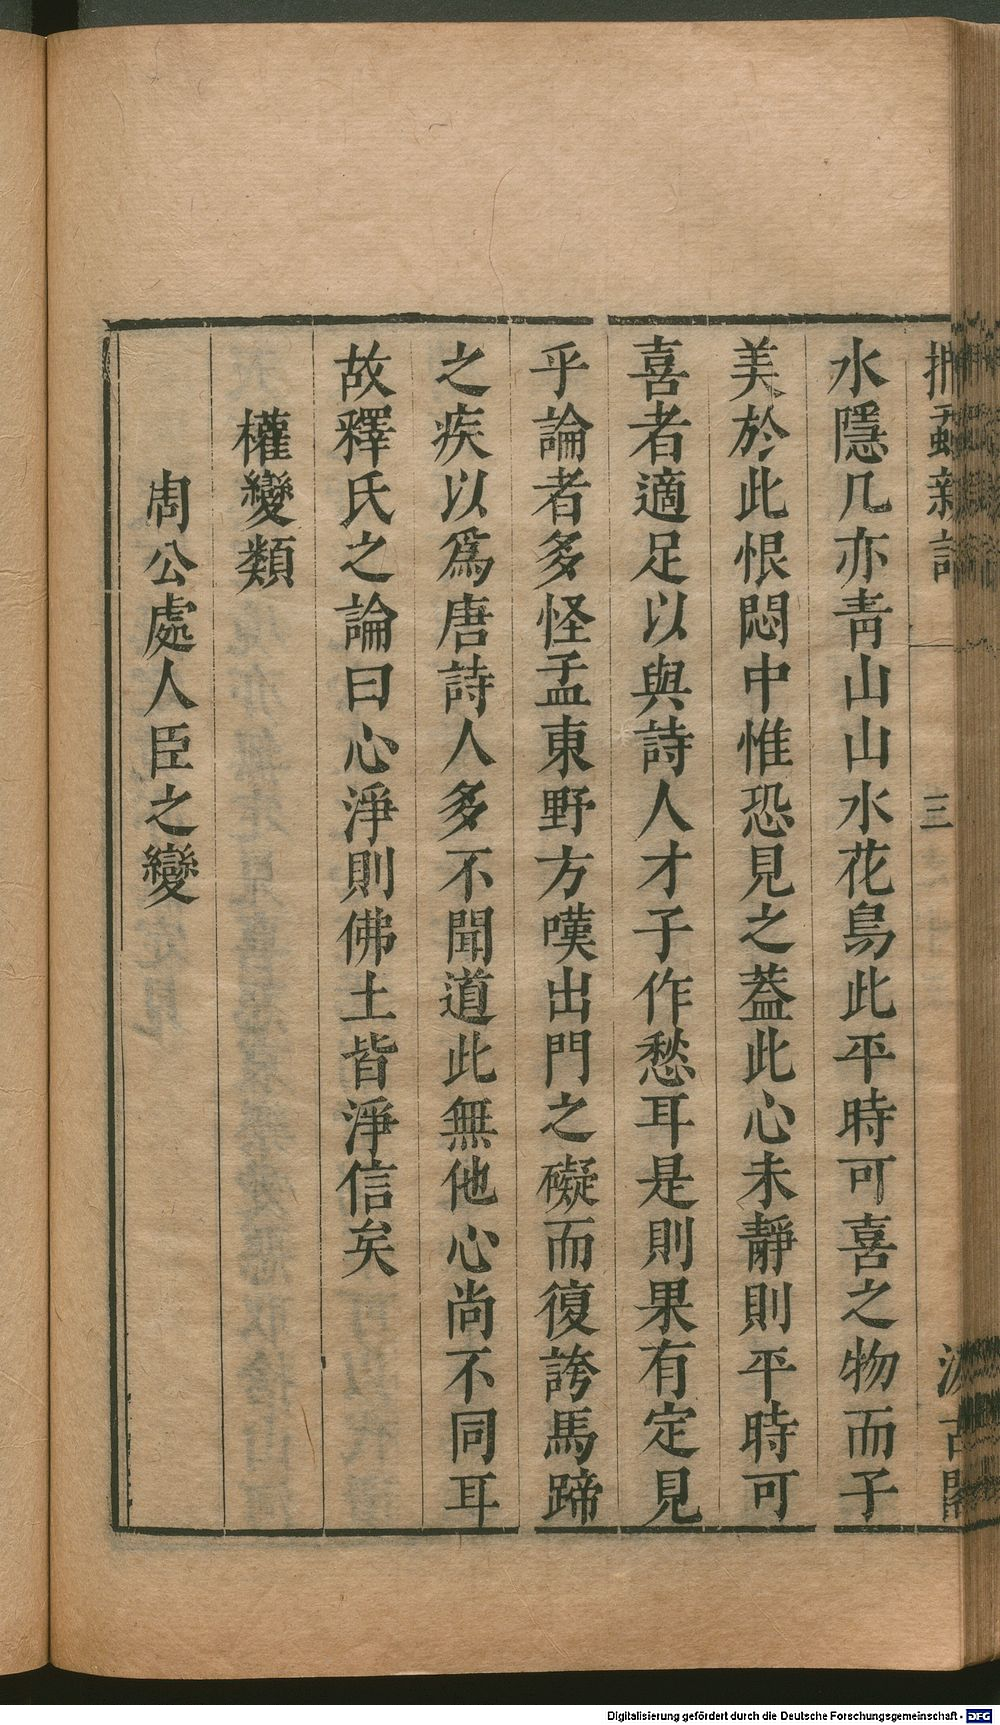 捫蝨新話 三 汲古閣
水隱几亦青山山水花鳥此平時可喜之物而子
美於此恨悶中惟恐見之葢此心未靜則平時可
喜者適足以與詩人才子作愁耳是則果有定見
乎論者多怪孟東野方嘆出門之礙而復誇馬蹄
之疾以爲唐詩人多不聞道此無他心尚不同耳
故釋氏之論曰心淨則佛土皆淨信矣
權變類
周公處人臣之變
Digitalisierung gefördert durch die Deutsche Forschungsgemeinschaft - DFG